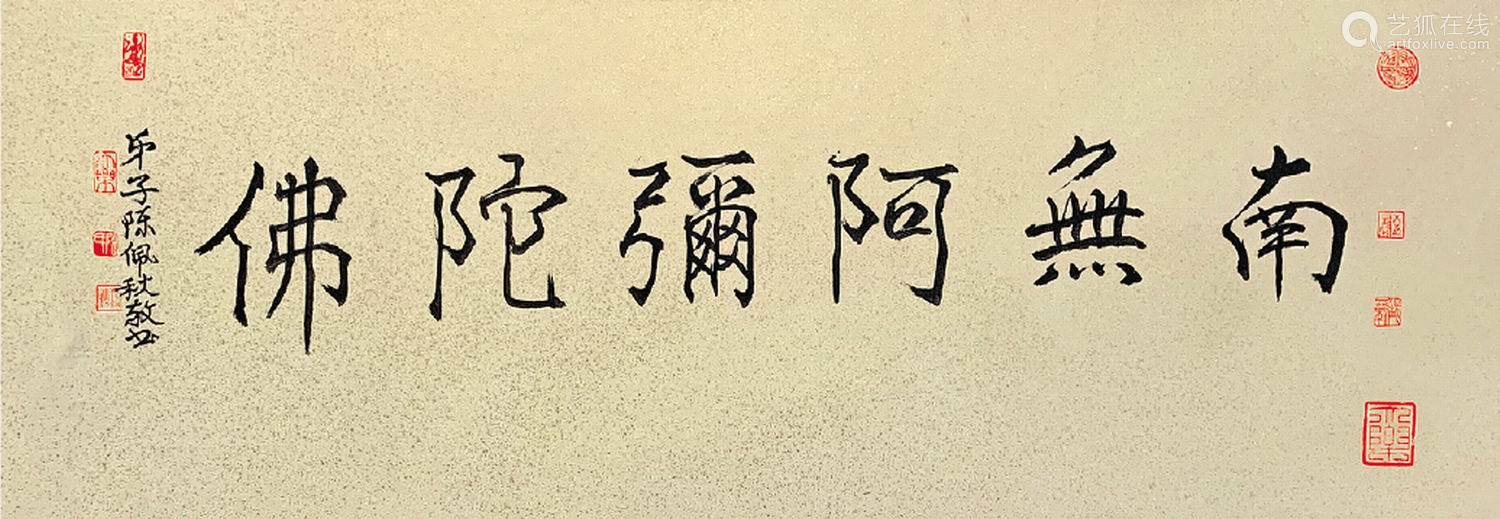 南無阿彌陀佛
弟子陈佩秋敬书
艺狐在线
artfoxlive.com